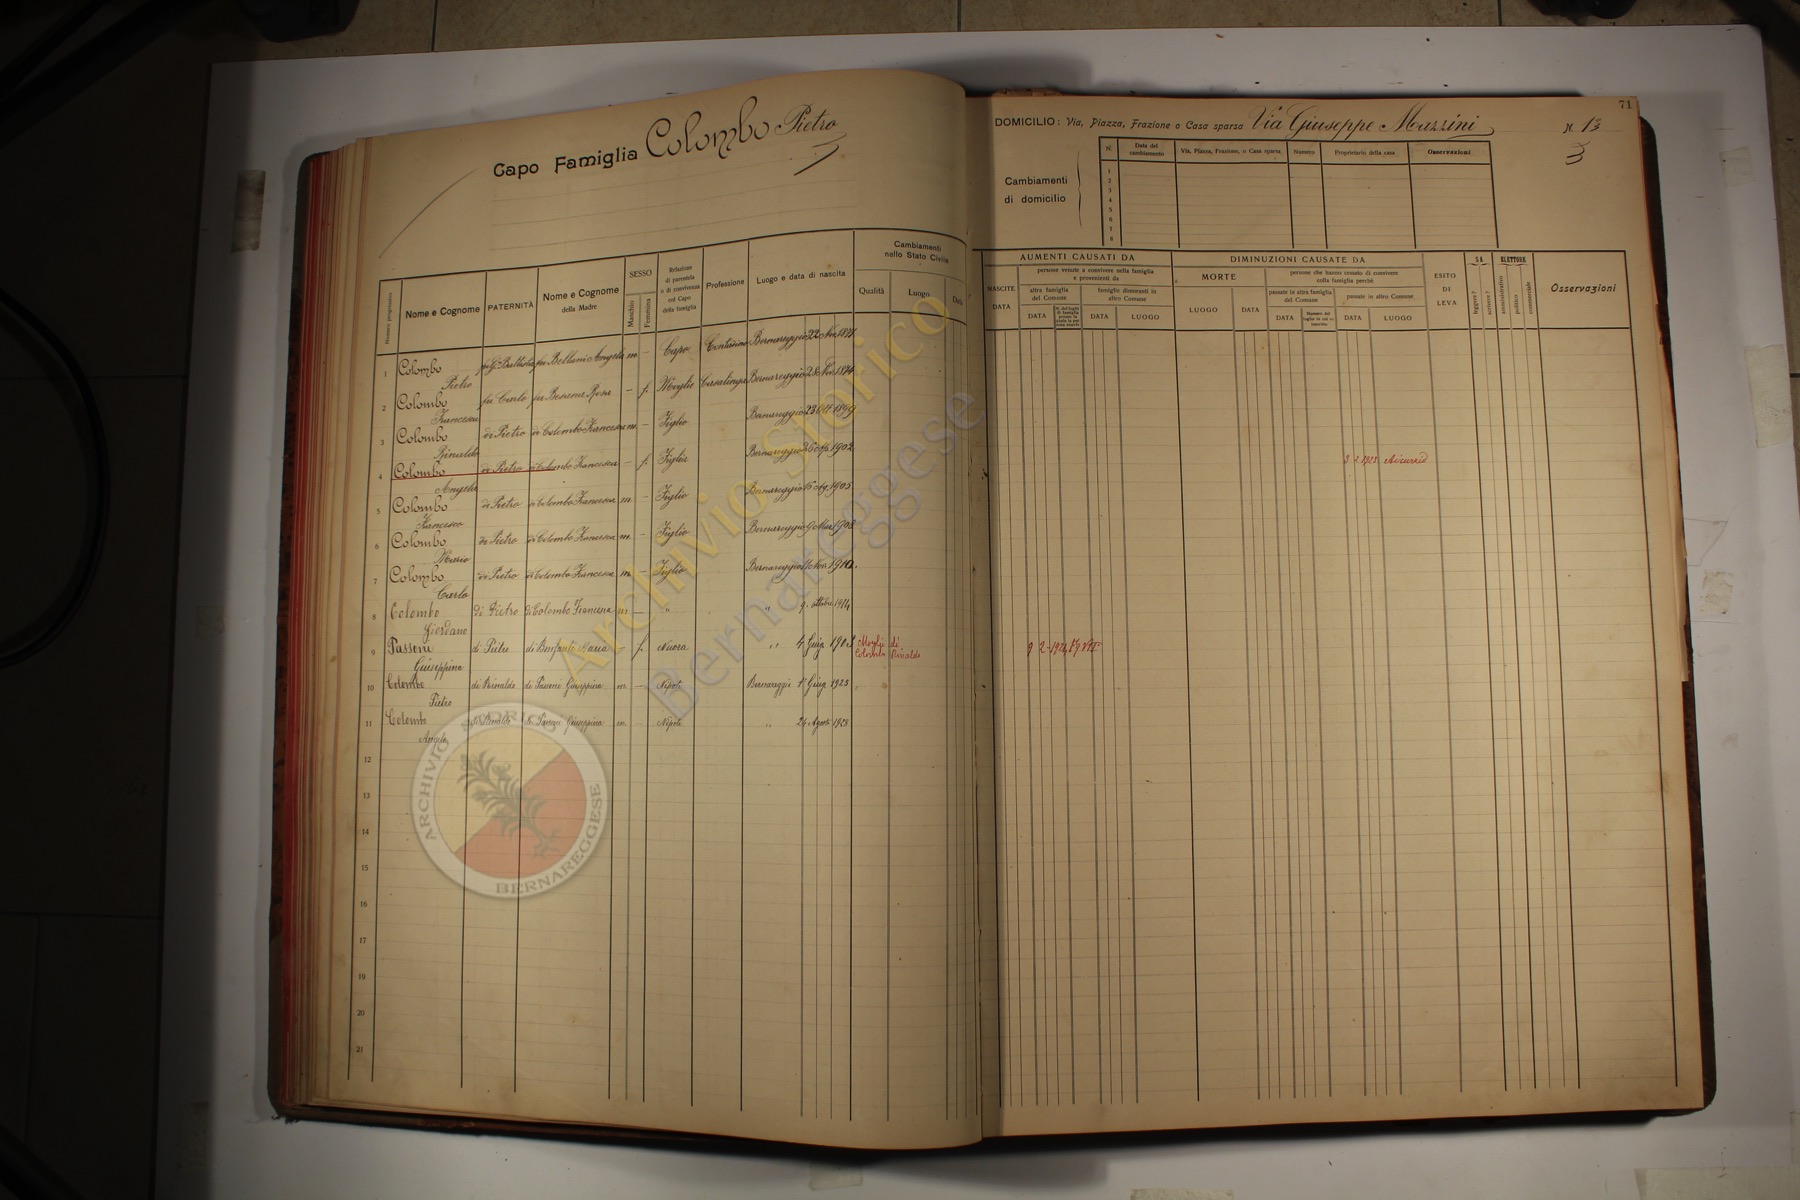 Capo Famiglia Colombo Pietro
Nome e Cognome
PATERNITÀ
Nome e Cognome
della Madre
SESSO
Maschio
Femmina
Relazione
di parentela
o di convivenza
col Capo
della famiglia
Professione
Luogo e data di nascita
Cambiamenti
nello Stato Civile
Qualità
Luogo
Data
1 Colombo Pietro fu Gio Battista fu Bellani Angela m - Capo Contadino Bernareggio 22 Nov.
2 Colombo Francesca fu Carlo fu Rosa - f. Moglie Casalinga Bernareggio 28 Nov. 1874
3 Colombo Rinaldo di Pietro di Colombo Francesca m - Figlio Bernareggio 23 Ott. 1899
4 Colombo Angela di Pietro di Colombo Francesca - f. Figlia Bernareggio 1902
5 Colombo Francesco di Pietro di Colombo Francesca m - Figlio Bernareggio 1905
6 Colombo Mario di Pietro di Colombo Francesca m - Figlio Bernareggio 9 Mar. 1908
7 Colombo Carlo di Pietro di Colombo Francesca m - Figlio Bernareggio Nov. 1910.
8 Colombo Giordano di Pietro di Colombo Francesca m - " " 9. ottobre 1914
9 Passoni Giuseppina di Maria - f. Nuora " 4 Giug 1903 Moglie di
Colombo Rinaldo
10 Colombo Pietro di Rinaldo di Passoni Giuseppina m - Nipote Bernareggio 1° Giug 1925
11 Colombo Angelo di Rinaldo di Passoni Giuseppina m. - Nipote " 24 Agosto 1928
12
13
14
15
16
17
18
19
20
21
71
DOMICILIO: Via, Piazza, Frazione o Casa sparsa Via Giuseppe Mazzini N. 13
3
Cambiamenti
di domicilio
N.
Data del
cambiamento
Via, Piazza, Frazione, o Casa sparsa
Numero
Proprietario della casa
Osservazioni
1
2
3
4
5
6
7
8
AUMENTI CAUSATI DA
NASCITE
DATA
persone venute a convivere nella famiglia
e provenienti da
altra famiglia
del Comune
DATA
famiglie dimoranti in
altro Comune
DATA
LUOGO
DIMINUZIONI CAUSATE DA
MORTE
LUOGO
DATA
persone che hanno cessato di convivere
colla famiglia perchè
passate in altra famiglia
del Comune
DATA
passate in altro Comune
DATA
LUOGO
ESITO
DI
LEVA
SA
leggere?
scrivere?
ELETTORE
amministrativo
politico
commerciale
Osservazioni
3 2 1923 Aicurzio
9 2-1924
Archivio Storico
Bernareggese
ARCHIVIO STORICO
BERNAREGGESE